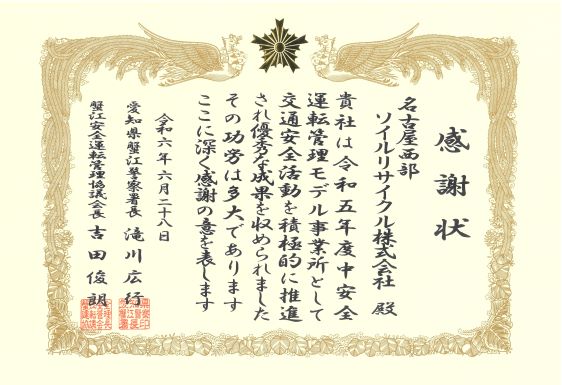 感謝状
名古屋西部
ソイルリサイクル株式会社 殿
貴社は令和五年度中安全
運転管理モデル事業所として
交通安全活動を積極的に推進
され優秀な成果を収められました
その功労は多大であります
ここに深く感謝の意を表します
令和六年六月二十八日
愛知県蟹江警察署長 滝川広行
蟹江安全運転管理協議会長 吉田俊朗